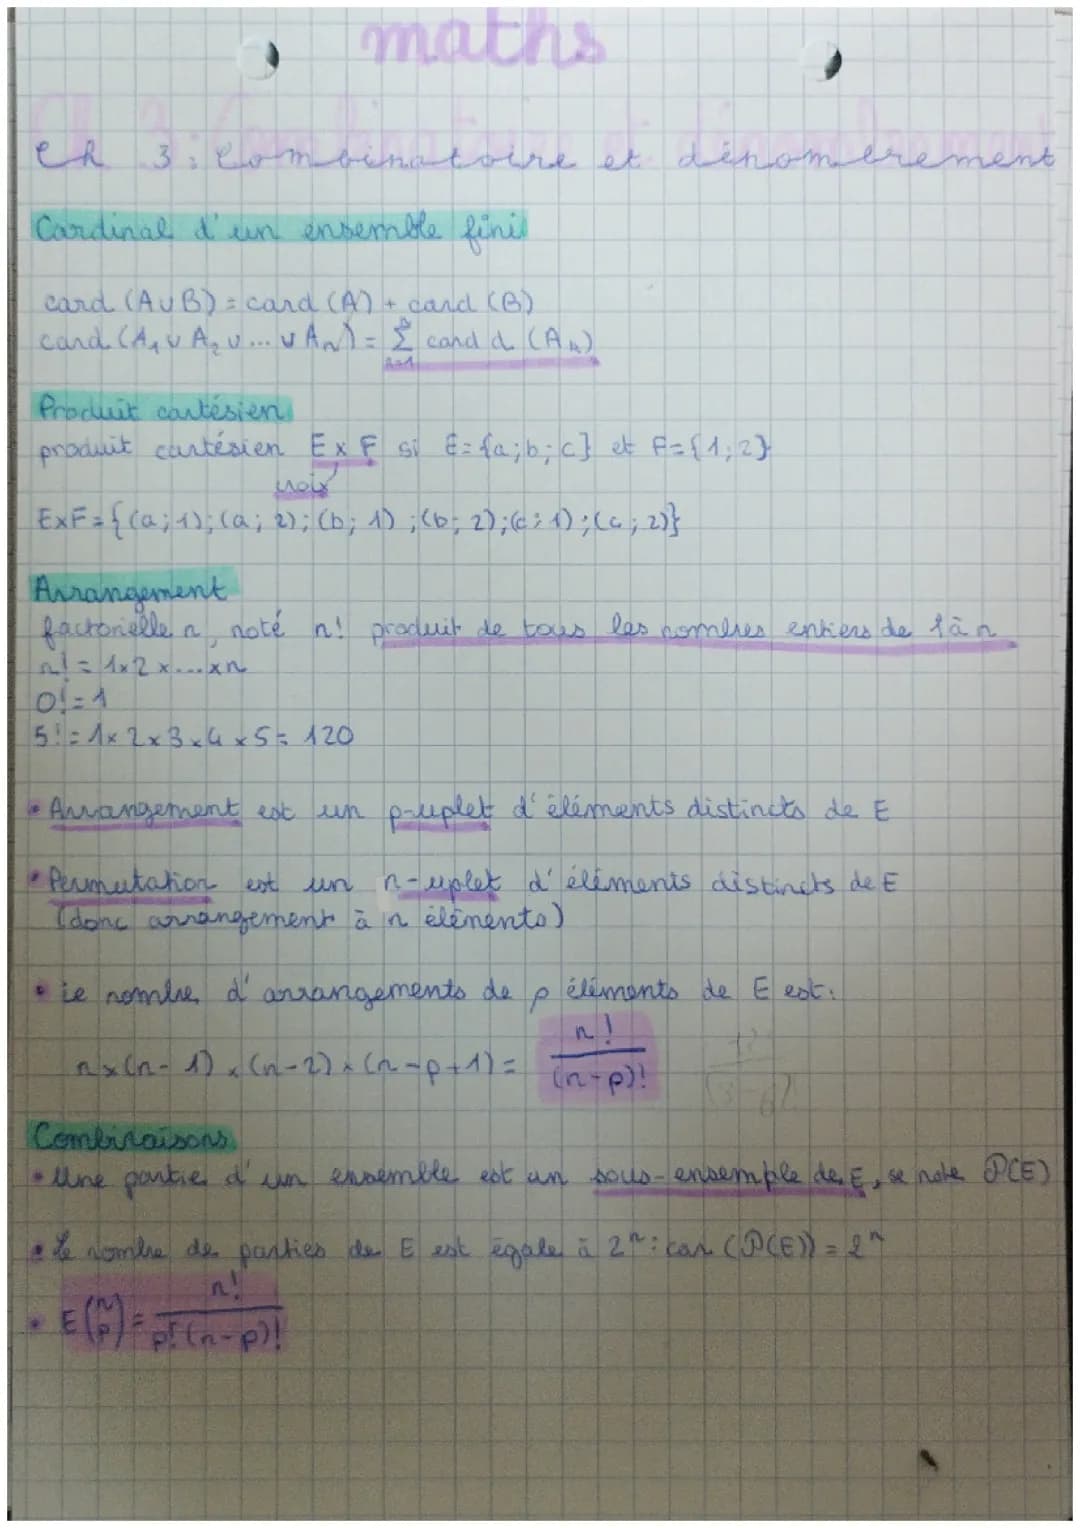 maths
Ch 3: Combinatoire et dénombrement
Cardinal d'un ensemble fini
card (A∪B) = card (A) + card (B)
card (A₁ ∪ A₂ ∪ ... ∪ Aₙ) = Σ card d (Aₖ)
Produit cartésien
produit cartésien E x F si E = {a;b;c} et F = {1;2}
croix
ExF = {(a;1);(a;2);(b;1);(b;2);(c;1);(c;2)}
Arrangement
factorielle n, noté n! produit de tous les nombres entiers de 1 à n
n! = 1x2x...xn
0! = 1
5! = 1x2x3x4x5 = 120
• Arrangement est un p-uplet d'éléments distincts de E
• Permutation est un n-uplet d'éléments distincts de E
(donc arrangement à n éléments)
• Le nombre d'arrangements de p éléments de E est:
n x (n-1) x (n-2) x (n-p+1) = n! / (n-p)!
Combinaisons
• Une partie d'un ensemble est un sous-ensemple de E, se note P(E)
• Le nombre de parties de E est égale à 2ⁿ : car (P(E)) = 2ⁿ
• E (n p) = n! / p!(n-p)!